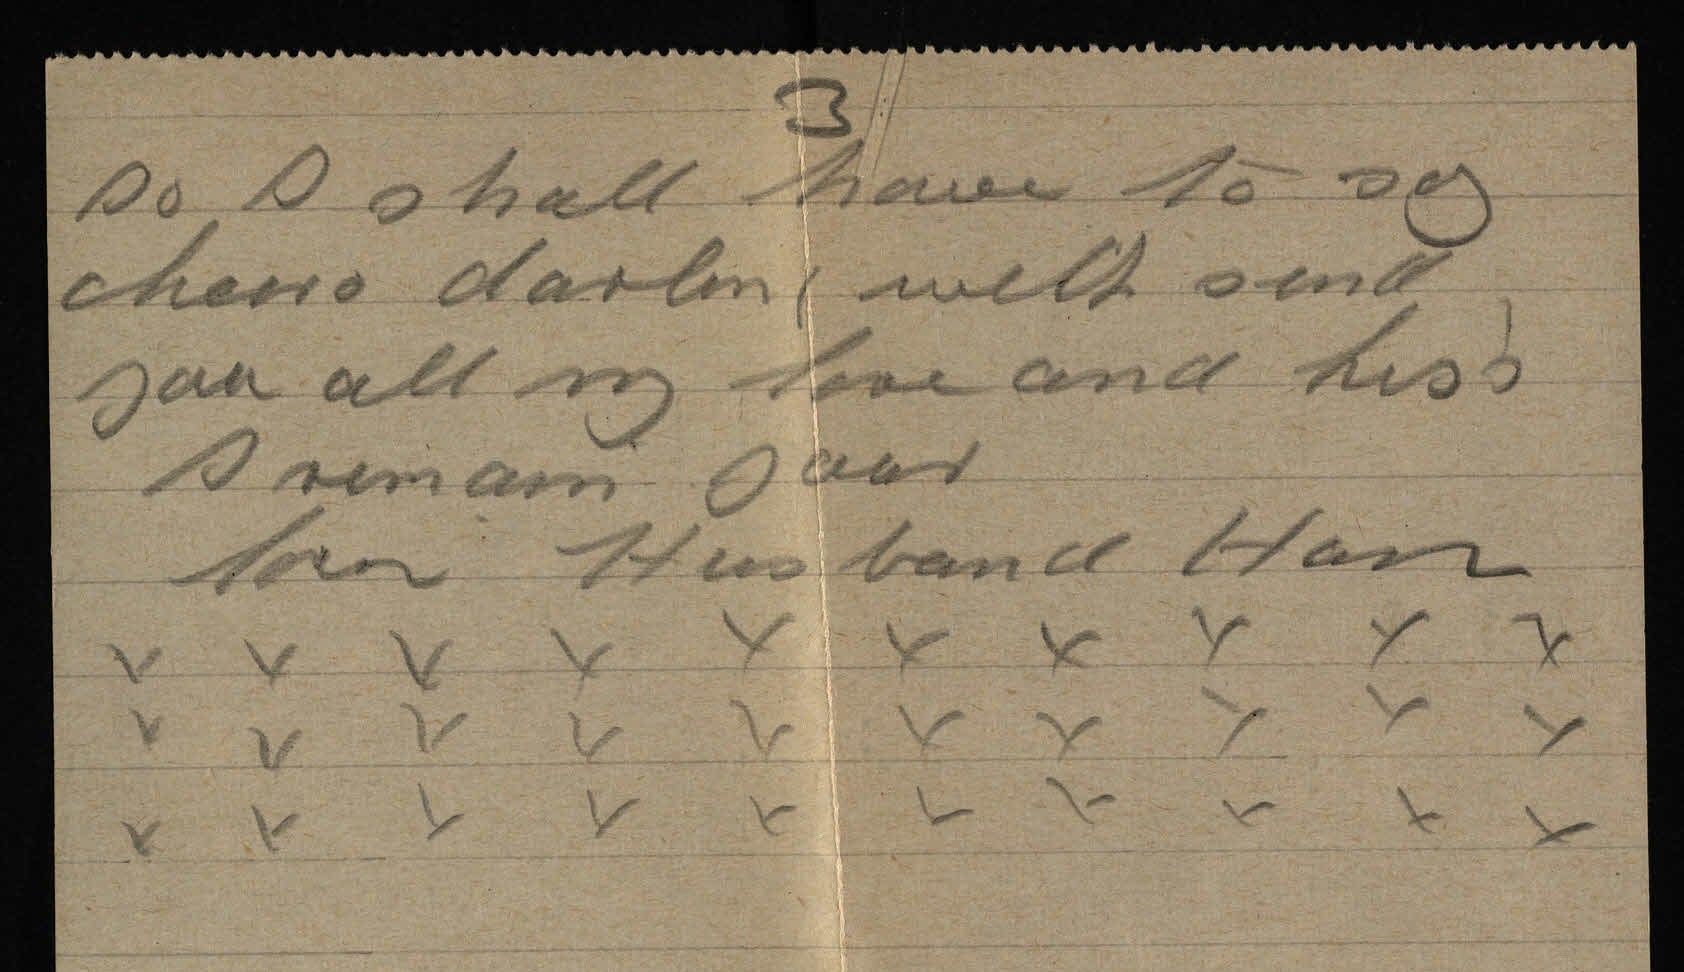 3
so I shall have to say
cheerio darling with send
you all my love and kiss's
I remain your
love Husband Harry
x x x x x x x x x x
x x x x x x x x x x
x x x x x x x x x x